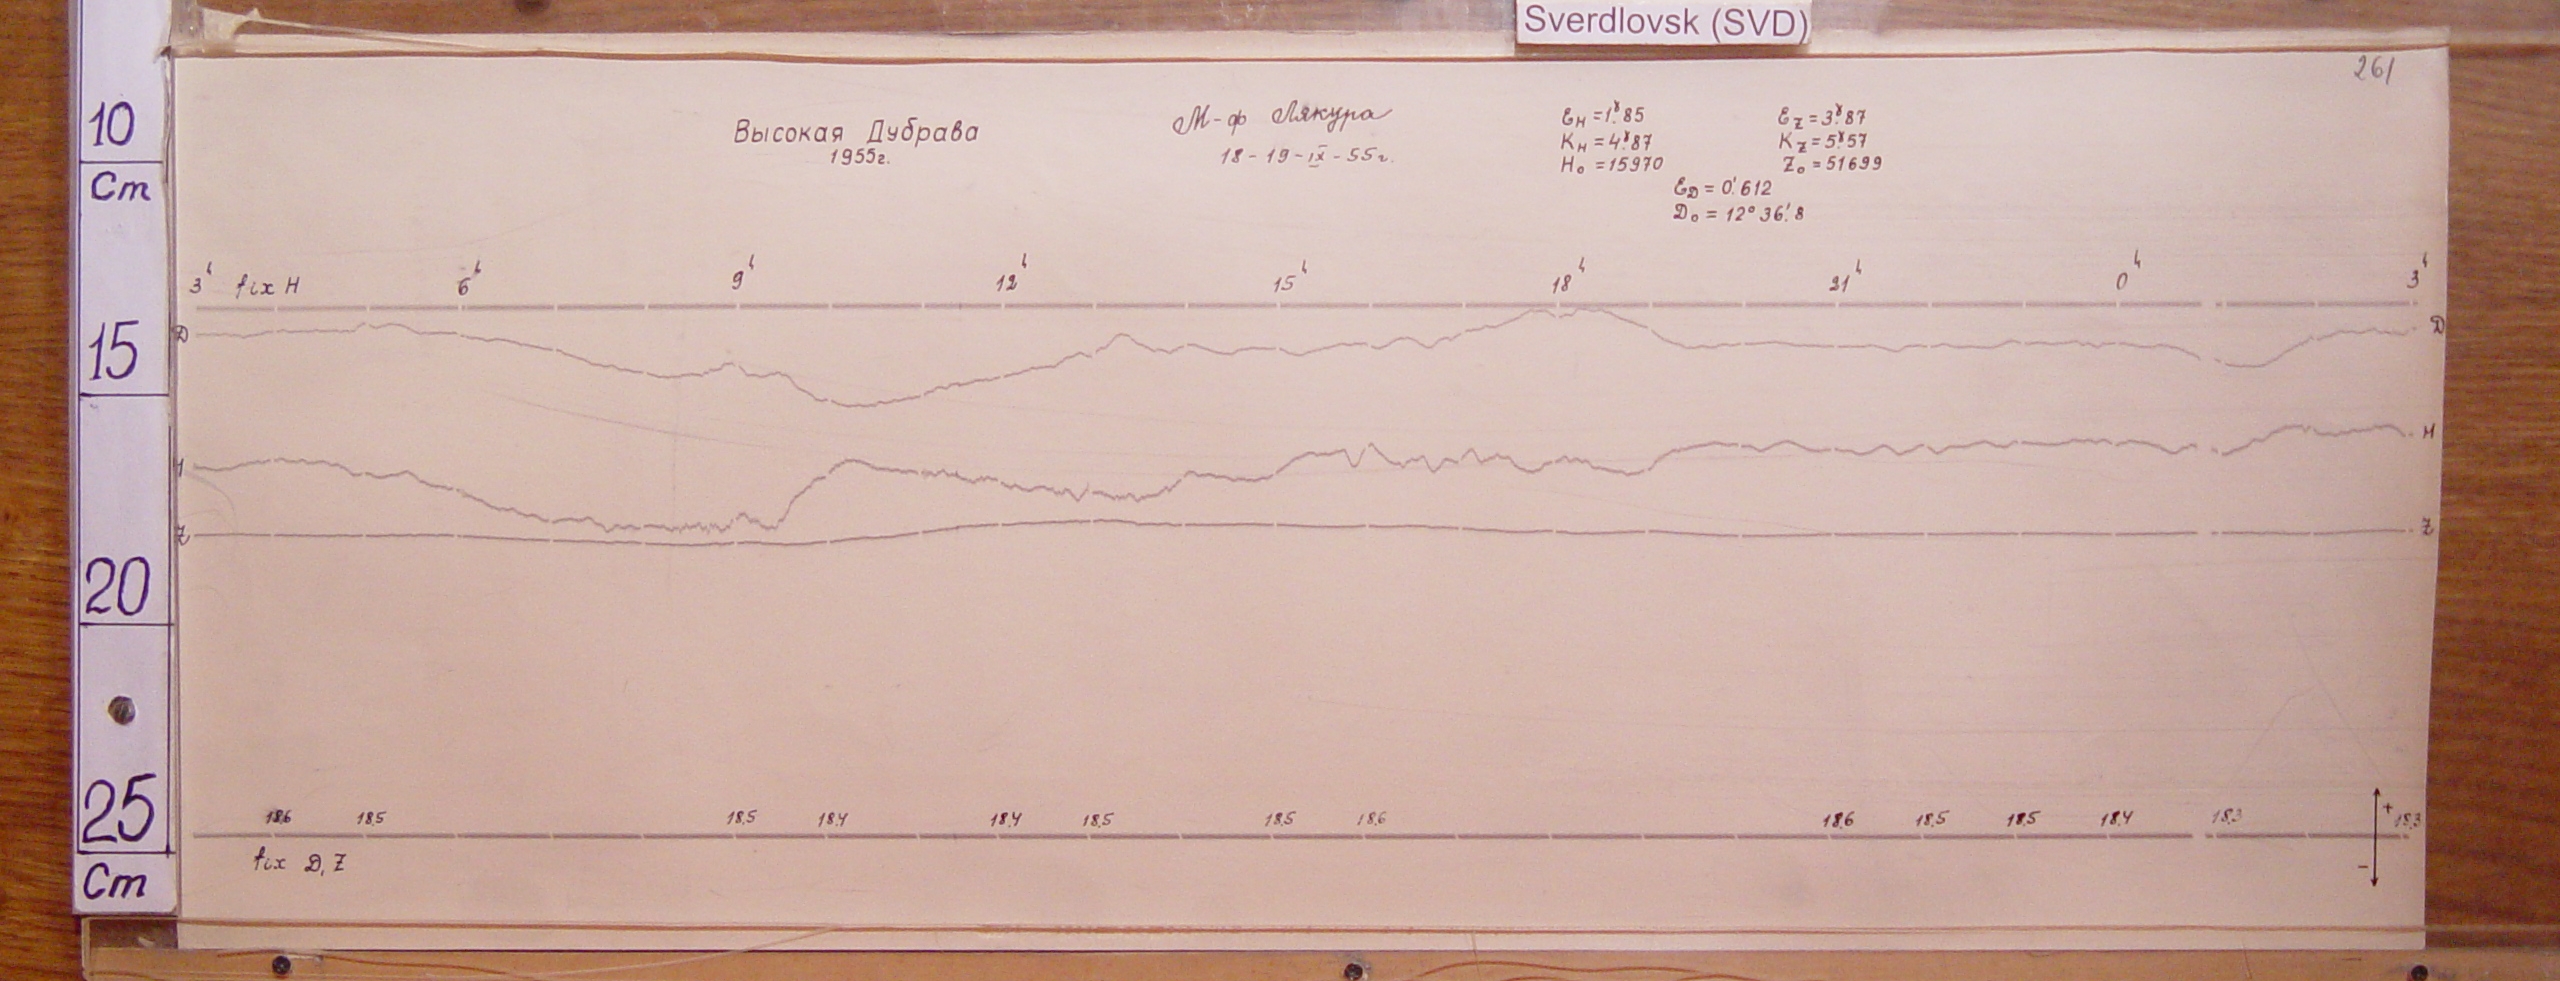 Sverdlovsk (SVD)
261
10
Cm
15
20
25
Cm
Высокая Дубрава
1955г.
М-ф Лякура
18-19-IX-55г.
ℰH = 1ˠ.85
KH = 4ˠ.87
H₀ = 15970
ℰZ = 3ˠ.87
KZ = 5ˠ.57
Z₀ = 51699
ℰD = 0'.612
D₀ = 12° 36'.8
3ʰ fix H 6ʰ 9ʰ 12ʰ 15ʰ 18ʰ 21ʰ 0ʰ 3ʰ
D D
H H
Z Z
18.6 18.5 18.5 18.4 18.4 18.5 18.5 18.6 18.6 18.5 18.5 18.4 18.3 18.3
fix D, Z
+
-